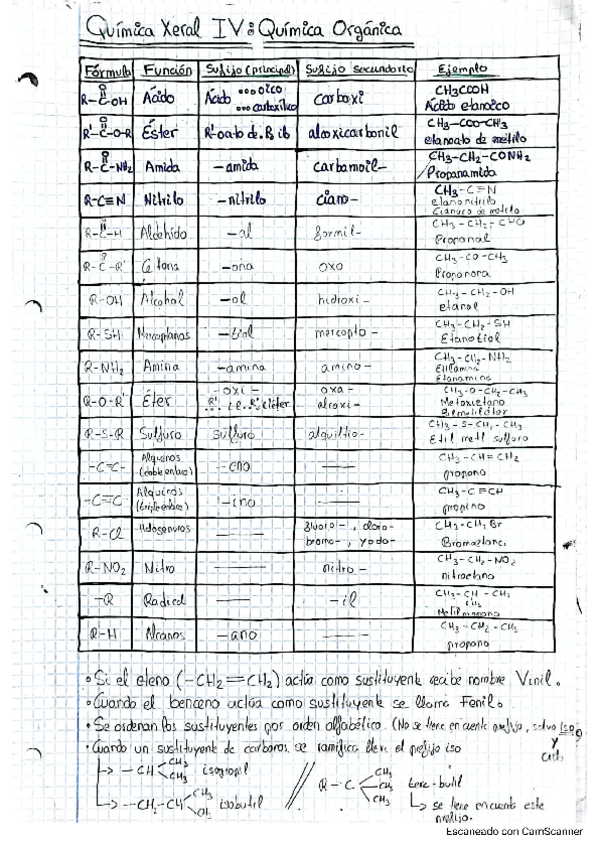 Química Xeral IV: Química Orgánica
Fórmula Función Sufijo (principal) Sufijo secundario Ejemplo
O
R-C-OH Ácido Ácido ...oico ...carboxílico carboxi CH3COOH Ácido etanoico
O
R'-C-O-R Éster R'-oato de R ilo alcoxicarbonil CH3-COO-CH3 etanoato de metilo
O
R-C-NH2 Amida -amida carbamoil- CH3-CH2-CONH2 Propanamida
R-C≡N Nitrilo -nitrilo ciano- CH3-C≡N etanonitrilo Cianuro de metilo
O
R-C-H Aldehido -al formil- CH3-CH2-CHO Propanal
O
R-C-R' Cetona -ona oxo CH3-CO-CH3 Propanona
R-OH Alcohol -ol hidroxi- CH3-CH2-OH etanol
R-SH Mercaptanos -tiol mercapto- CH3-CH2-SH Etanotiol
R-NH2 Amina -amina amino- CH3-CH2-NH2 Etilamina Etanamina
R-O-R' Éter -oxi- oxa- alcoxi- CH3-O-CH2-CH3 Metoxietano
R-S-R Sulfuro sulfuro alquiltio- CH3-S-CH2-CH3 Etil metil sulfuro
-C=C- Alquenos (doble enlace) -eno —— CH2-CH=CH2 propeno
-C≡C- Alquinos (triple enlace) -ino —— CH3-C≡CH propino
R-Cl Halogenuros —— fluoro-, cloro- bromo-, yodo- CH3-CH2Br Bromoetano
R-NO2 Nitro —— nitro- CH3-CH2-NO2 nitroetano
-R Radical —— -il CH3-CH-CH3 CH3 Metilpropano
R-H Alcanos -ano —— CH3-CH2-CH3 propano
• Si el eteno (-CH2=CH2) actúa como sustituyente recibe nombre Vinil.
• Cuando el benceno actúa como sustituyente se llama Fenilo.
• Se ordenan los sustituyentes por orden alfabético. (No se tiene en cuenta prefijo, salvo iso y ciclo)
• Cuando un sustituyente de carbonos se ramifica lleva el prefijo iso
↳ -CH CH3 CH3 isopropil
↳ -CH2-CH CH3 CH3 isobutil
R-C CH3 CH3 CH3 terc-butil
↳ se tiene en cuenta este prefijo.
Escaneado con CamScanner